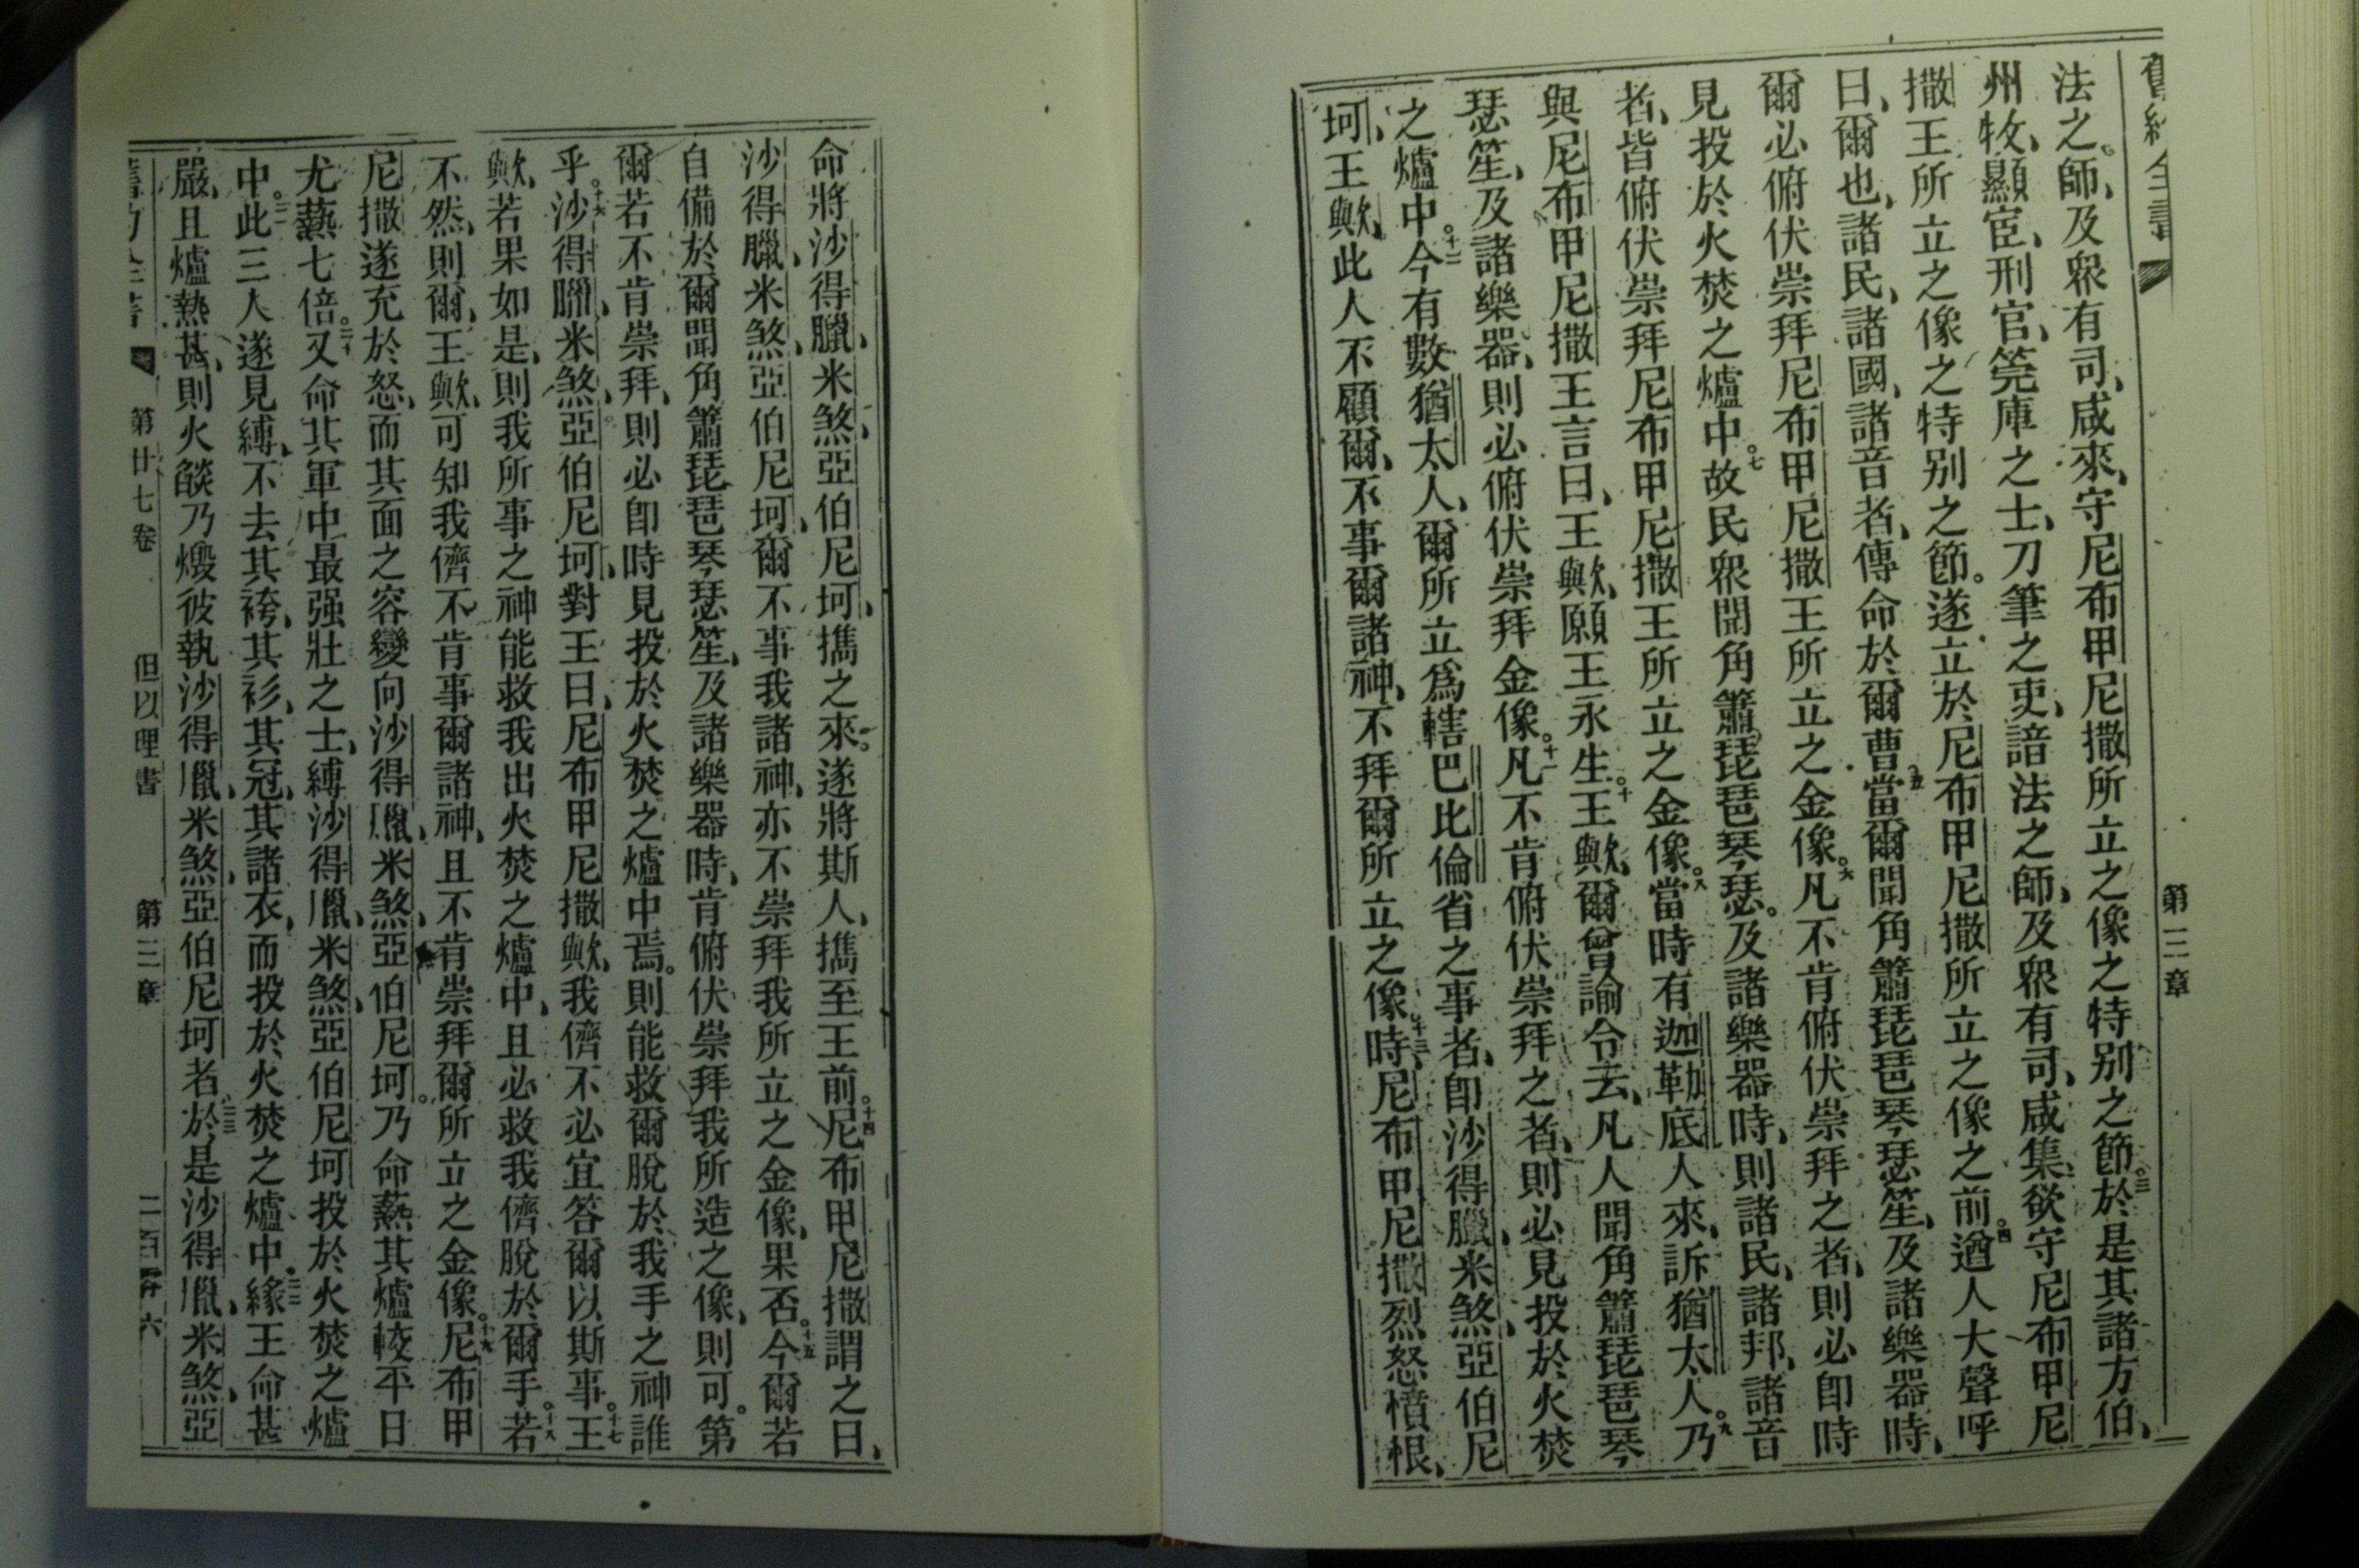 舊約全書 第三章
法之師、及眾有司、咸來、守尼布甲尼撒所立之像之特別之節。三於是其諸方伯、
州牧、顯宦、刑官、筦庫之士、刀筆之吏、諳法之師、及眾有司、咸集、欲守尼布甲尼
撒王所立之像之特別之節。遂立於尼布甲尼撒所立之像之前。四遒人大聲呼
曰、爾也、諸民、諸國、諸音者、傳命於爾曹。五當爾聞角簫琵琶琴瑟笙、及諸樂器時、
爾必俯伏崇拜尼布甲尼撒王所立之金像。六凡不肯俯伏崇拜之者、則必即時
見投於火焚之爐中。七故民眾聞角簫琵琶琴瑟。及諸樂器時、則諸民、諸邦、諸音
者、皆俯伏崇拜尼布甲尼撒王所立之金像。八當時有迦勒底人來、訴猶太人。九乃
與尼布甲尼撒王言曰、王歟、願王永生。十王歟、爾曾諭令云、凡人聞角簫琵琶琴
瑟笙、及諸樂器、則必俯伏崇拜金像。十一凡不肯俯伏崇拜之者、則必見投於火焚
之爐中。十二今有數猶太人、爾所立爲轄巴比倫省之事者、即沙得臘、米煞、亞伯尼
坷、王歟、此人不顧爾、不事爾諸神、不拜爾所立之像。十三時、尼布甲尼撒烈怒憤根、
命將沙得臘、米煞、亞伯尼坷、攜之來。遂將斯人、攜至王前。十四尼布甲尼撒謂之曰、
沙得臘、米煞、亞伯尼坷、爾不事我諸神、亦不崇拜我所立之金像、果否。十五今爾若
自備於爾聞角簫琵琶琴瑟笙、及諸樂器時、肯俯伏崇拜我所造之像、則可。第
爾若不肯崇拜、則必即時見投於火焚之爐中焉。則能救爾脫於我手之神誰
乎。十六沙得臘、米煞、亞伯尼坷、對王曰、尼布甲尼撒歟、我儕不必宜答爾以斯事。十七王
歟、若果如是、則我所事之神能救我出火焚之爐中、且必救我儕脫於爾手。十八若
不然、則爾、王歟、可知我儕不肯事爾諸神、且不肯崇拜爾所立之金像。十九尼布甲
尼撒遂充於怒、而其面之容變向沙得臘、米煞、亞伯尼坷。乃命爇其爐較平日
尤爇七倍。二十又命其軍中最强壯之士、縛沙得臘、米煞、亞伯尼坷投於火焚之爐
中。二一此三人遂見縛、不去其袴、其衫、其冠、其諸衣、而投於火焚之爐中。二二緣王命甚
嚴、且爐熱甚、則火燄乃燬彼執沙得臘、米煞、亞伯尼坷者。二三於是沙得臘、米煞、亞
舊約全書 第廿七卷 但以理書 第三章